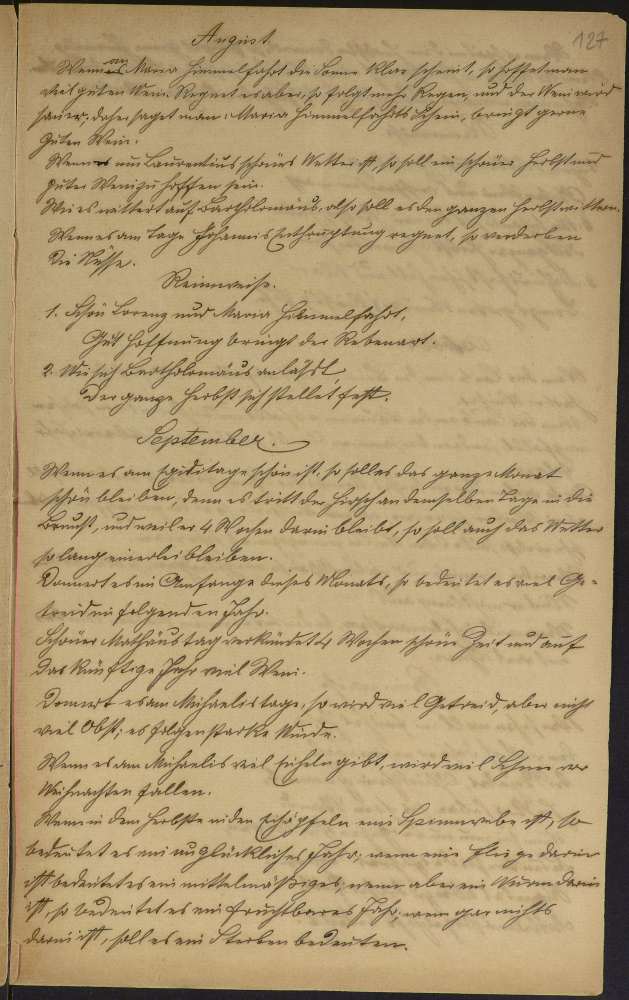 August.
127
Wenn an Maria Himmelfahrt die Sonne klar scheint, so hoffet man
viel guten Wein. Regnet es aber, so folgt mehr Regen, und der Wein wird
sauer, daher saget man: Maria Himmelfahrts Schein, bringt gerne
guten Wein.
Wenn um Laurentius schönes Wetter ist, so soll ein schöner Herbst und
guter Wein zu hoffen sein.
Wie es wittert auf Bartholomäus, also soll es den ganzen Herbst wittern.
Wenn es am Tage Johannis Enthauptung regnet, so verderben
die Nüsse.
Reimweise.
1. Schön Lorenz und Maria Himmelfahrt,
Gut Hoffnung bringt der Rebenart.
2. Wie sich Bartholomäus anläßt,
Der ganze Herbst sich stellet fest.
September.
Wenn es am Egiditage schön ist, so soll es das ganze Monat
schön bleiben, denn es tritt der Hirsch an demselben Tage in die
Brunst, und weil er 4 Wochen darin bleibt, so soll auch das Wetter
so lang einerlei bleiben.
Donnert es im Anfange dieses Monats, so bedeutet es viel Ge-
treid im folgenden Jahr.
Schöner Mathäustag verkündet 4 Wochen schöne Zeit und auf
das künftige Jahr viel Wein.
Donnert es am Michaelistage, so wird viel Getreid, aber nicht
viel Obst; es folgen starke Winde.
Wenn es am Michaelis viel Eicheln gibt, wird viel Schnee vor
Weihnachten fallen.
Wenn in dem Herbste in den Eichäpfeln eine Spinnwebe ist, so
bedeutet es ein unglückliches Jahr; wenn eine Fliege darin
ist bedeutet es ein mittelmäßiges; wenn aber ein Wurm darin
ist, so bedeutet es ein fruchtbares Jahr; wenn gar nichts
darin ist, soll es ein Sterben bedeuten.